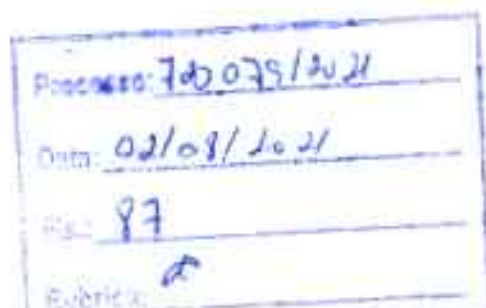 Processo: 720 079/2021
Data: 02/08/2021
Fls.: 87
Rubrica: